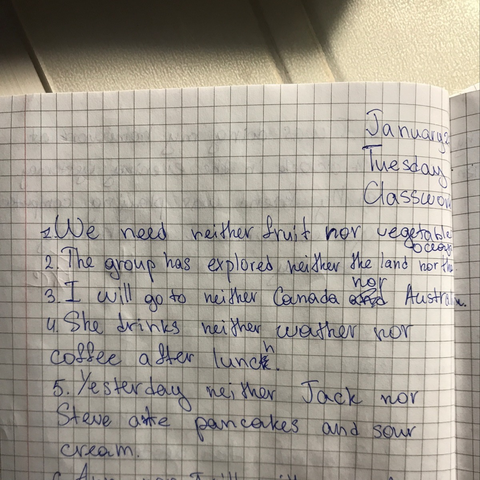 January
Tuesday
Classwor
1. We need neither fruit nor vegetable
ocean
2. The group has explored neither the land nor the
nor
3. I will go to neither Canada Australia.
4. She drinks neither wather nor
coffee after lunch.
5. Yesterday neither Jack nor
Steve ate pancakes and sour
cream.